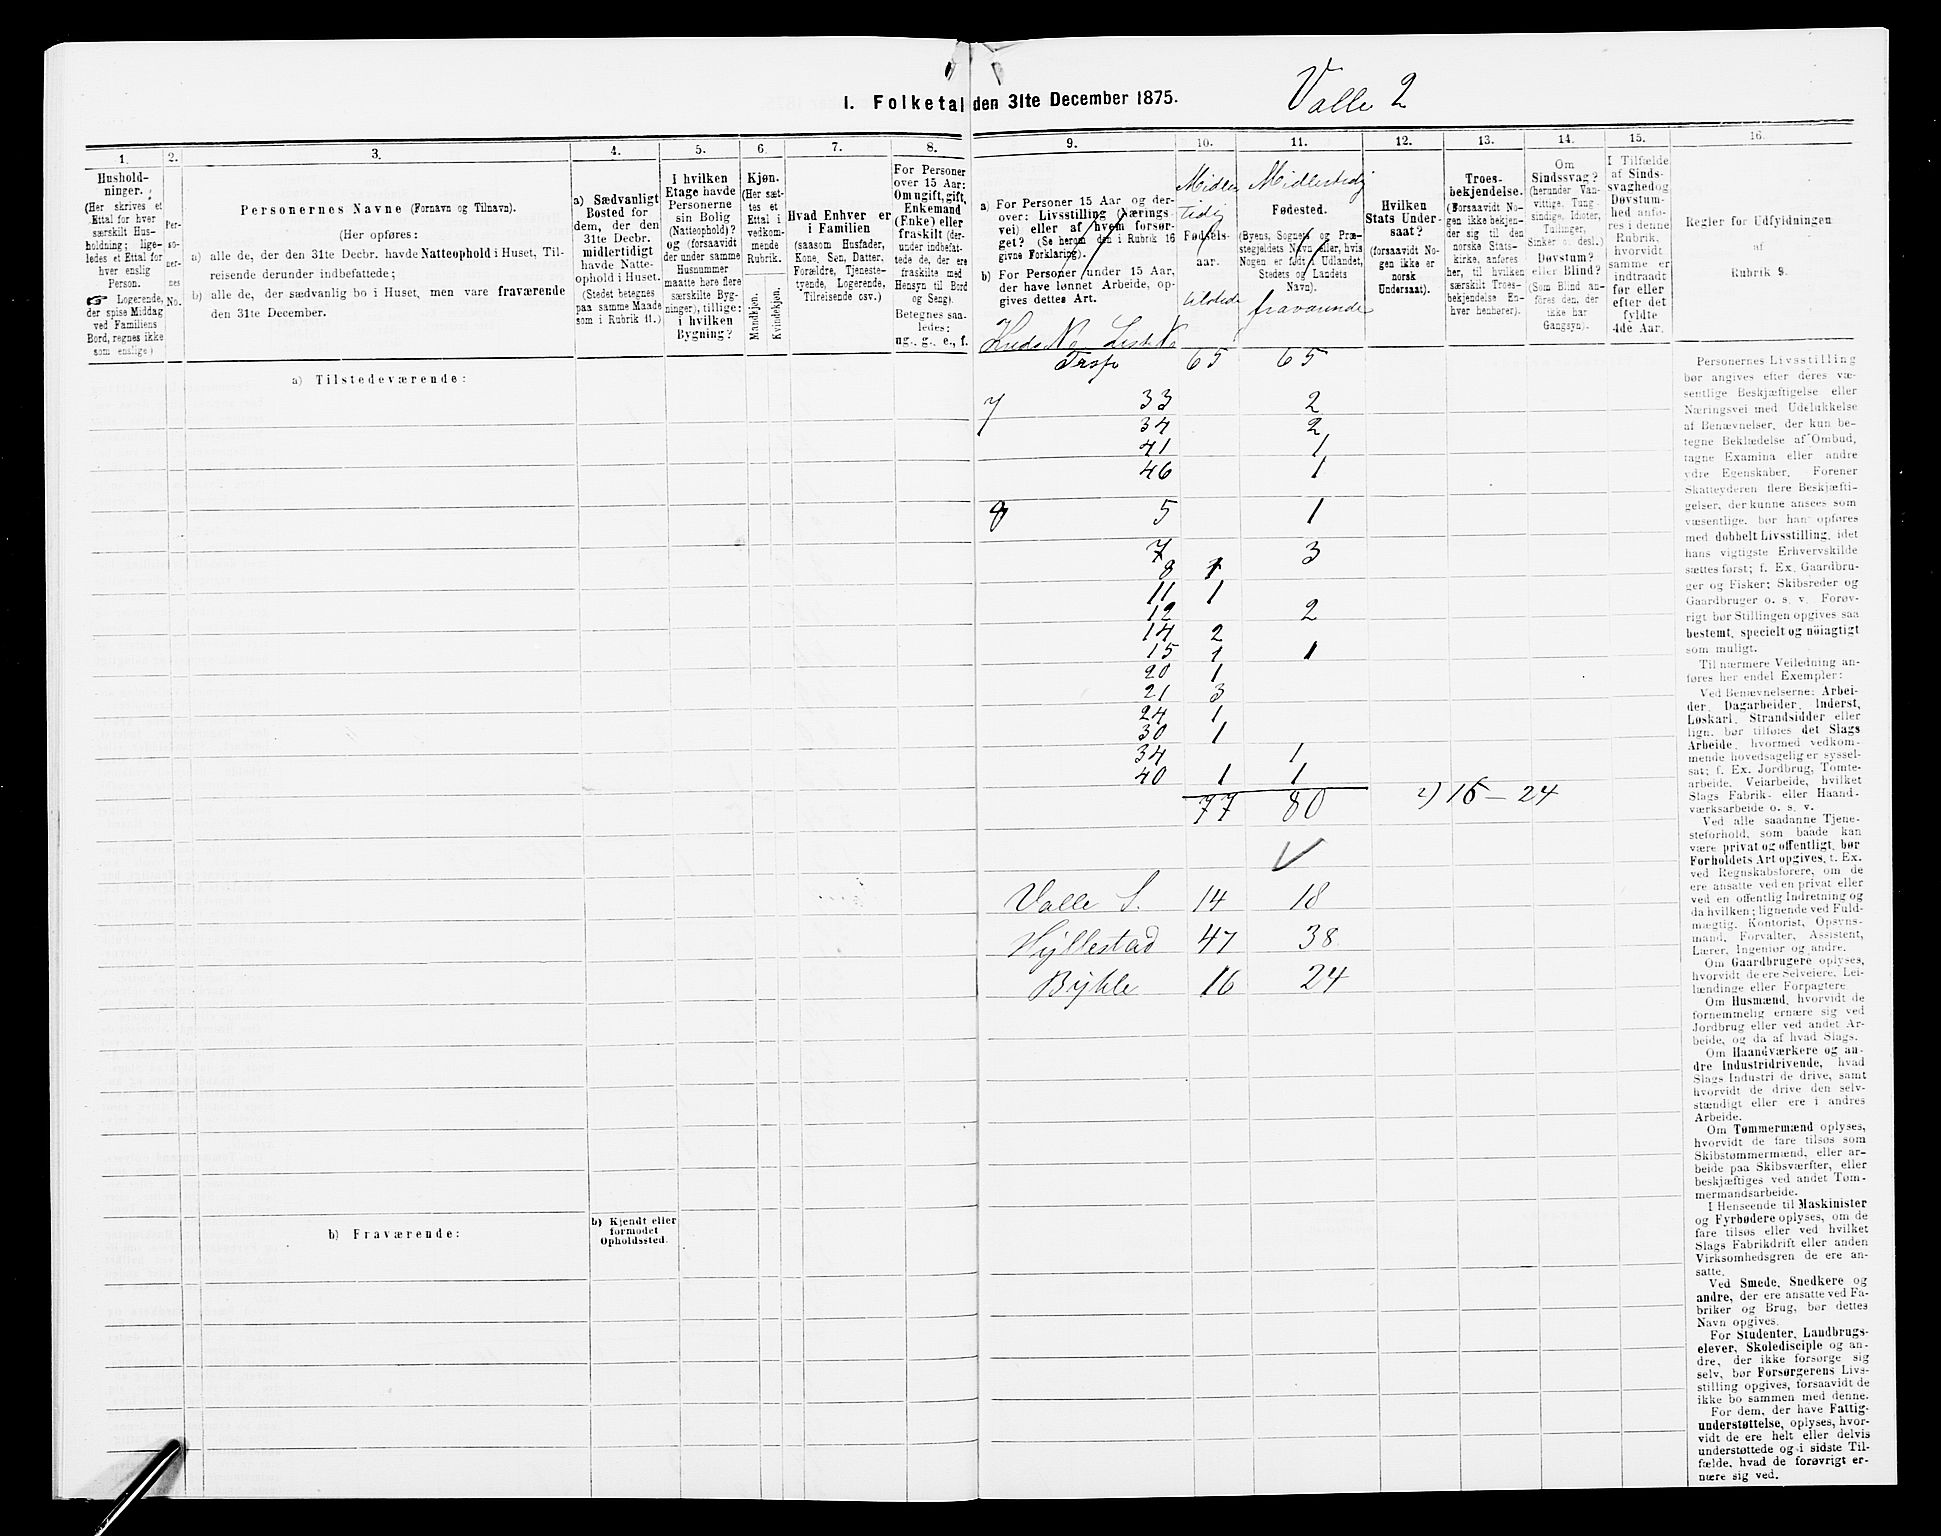 I. Folketal den 31te December 1875.
Valle 2
1.
Hushold-
ninger.
(Her skrives et
Ettal for hver
særskilt Hus-
holdning; lige-
ledes et Ettal for
hver enslig
Person.
☞ Logerende,
der spise Middag
ved Familiens
Bord, regnes ikke
som enslige.)
2.
Per-
so-
ner-
nes
No.
3.
Personernes Navne (Fornavn og Tilnavn).
(Her opføres:
a) alle de, der den 31te Decbr. havde Natteophold i Huset, Til-
reisende derunder indbefattede;
b) alle de, der sædvanlig bo i Huset, men vare fraværende
den 31te December.
4.
a) Sædvanligt
Bosted for
dem, der den
31te Decbr.
midlertidigt
havde Natte-
ophold i Huset.
(Stedet betegnes
paa samme Maade
som i Rubrik 11.)
5.
I hvilken
Etage havde
Personerne
sin Bolig
(Natteophold)?
og (forsaavidt
der under samme
Husnummer
maatte høre flere
særskilte Byg-
ninger), tillige:
i hvilken
Bygning?
6.
Kjøn.
(Her sæt-
tes et
Ettal i
vedkom-
mende
Rubrik.
Mandkjøn.
Kvindekjøn.
7.
Hvad Enhver er
i Familien
(saasom Husfader,
Kone, Søn, Datter,
Forældre, Tjeneste-
tyende, Logerende,
Tilreisende osv.)
8.
For Personer
over 15 Aar:
Om ugift, gift,
Enkemand
(Enke) eller
fraskilt (der-
under indbefat-
tede de, der ere
fraskilte med
Hensyn til Bord
og Seng).
Betegnes saa-
ledes:
ug., g., e., f.
9.
a) For Personer 15 Aar og der-
over: Livsstilling (Nærings-
vei) eller af hvem forsør-
get? (Se herom den i Rubrik 16
givne Forklaring).
b) For Personer under 15 Aar,
der have lønnet Arbeide, op-
gives dettes Art.
10.
Midler
tidig
Fødsels-
aar.
tilstede
11.
Midlertidig
Fødested.
(Byens, Sognets og Præ-
stegjeldets Navn eller, hvis
Nogen er født i Udlandet,
Stedets og Landets
Navn).
fraværende
12.
Hvilken
Stats Under-
saat?
(forsaavidt No-
gen ikke er
norsk
Undersaat).
13.
Troes-
bekjendelse.
(Forsaavidt No-
gen ikke bekjen-
der sig til den
norske Stats-
kirke, anføres
her, til hvilken
særskilt Troes-
bekjendelse En-
hver henhører).
14.
Om
Sindssvag?
(herunder Van-
vittige, Tung-
sindige, Idioter,
Tullinger,
Sinker o. desl.)
Døvstum?
eller Blind?
(Som Blind an-
føres den, der
ikke har
Gangsyn).
15.
I Tilfælde
af Sinds-
svaghedog
Døvstum-
hed anfø-
res i denne
Rubrik,
hvorvidt
samme er
indtraadt
før eller
efter det
fyldte
4de Aar.
16.
Regler for Udfyldningen
af
Rubrik 9.
Kreds No Liste No
Trsp 65 65
7 33 2
34 2
41 1
46 1
8 5 1
7 3
8 1
11 1
12 2
14 2
15 1 1
20 1
21 3
24 1
30 1
34 1
40 1 1
77 80 2) 16 – 24
Valle S. 14 18
Hyllestad 47 38
Bykle 16 24
a) Tilstedeværende:
b) Fraværende:
b) Kjendt eller
formodet
Opholdssted.
Personernes Livsstilling
bør angives efter deres væ-
sentlige Beskjæftigelse eller
Næringsvei med Udelukkelse
af Benævnelser, der kun be-
tegne Beklædelse af Ombud,
tagne Examina eller andre
ydre Egenskaber. Forener
Skatteyderen flere Beskjæfti-
gelser, der kunne ansees som
væsentlige, bør han opføres
med dobbelt Livsstilling, idet
hans vigtigste Erhvervskilde
sættes først; f. Ex. Gaardbru-
ger og Fisker; Skibsreder og
Gaardbruger o. s. v. Forøv-
rigt bør Stillingen opgives saa
bestemt, specielt og nøiagtigt
som muligt.
Til nærmere Veiledning an-
føres her endel Exempler:
Ved Benævnelserne: Arbei-
der, Dagarbeider, Inderst,
Løskarl, Strandsidder eller
lign. bør tilføies det Slags
Arbeide, hvormed vedkom-
mende hovedsagelig er syssel-
sat; f. Ex. Jordbrug, Tomte-
arbeide, Veiarbeide, hvilket
Slags Fabrik- eller Haand-
værksarbeide o. s. v.
Ved alle saadanne Tjene-
steforhold, som baade kan
være privat og offentligt, bør
Forholdets Art opgives, f. Ex.
ved Regnskabsførere, om de
ere ansatte ved en privat eller
ved en offentlig Indretning og
da hvilken; lignende ved Fuld-
mægtig, Kontorist, Opsyns-
mand, Forvalter, Assistent,
Lærer, Ingeniør og andre.
Om Gaardbrugere oplyses,
hvorvidt de ere Selveiere, Lei-
lændinge eller Forpagtere.
Om Husmænd, hvorvidt de
fornemmelig ernære sig ved
Jordbrug eller ved andet Ar-
beide, og da af hvad Slags.
Om Haandværkere og an-
dre Industridrivende, hvad
Slags Industri de drive, samt
hvorvidt de drive den selv-
stændigt eller ere i andres
Arbeide.
Om Tømmermænd oplyses,
hvorvidt de fare tilsøs som
Skibstømmermænd, eller ar-
beide paa Skibsværfter, eller
beskjæftiges ved andet Tøm-
mermandsarbeide.
I Henseende til Maskinister
og Fyrbødere oplyses, om de
fare tilsøs eller ved hvilket
Slags Fabrikdrift eller anden
Virksomhedsgren de ere an-
satte.
Ved Smede, Snedkere og
andre, der ere ansatte ved Fa-
briker og Brug, bør dettes
Navn opgives.
For Studenter, Landbrugs-
elever, Skoledisciple og an-
dre, der ikke forsørge sig
selv, bør Forsørgerens Livs-
stilling opgives, forsaavidt de
ikke bo sammen med denne.
For dem, der have Fattig-
understøttelse, oplyses, hvor-
vidt de ere helt eller delvis
understøttede og i sidste Til-
fælde, hvad de forøvrigt er-
nære sig ved.